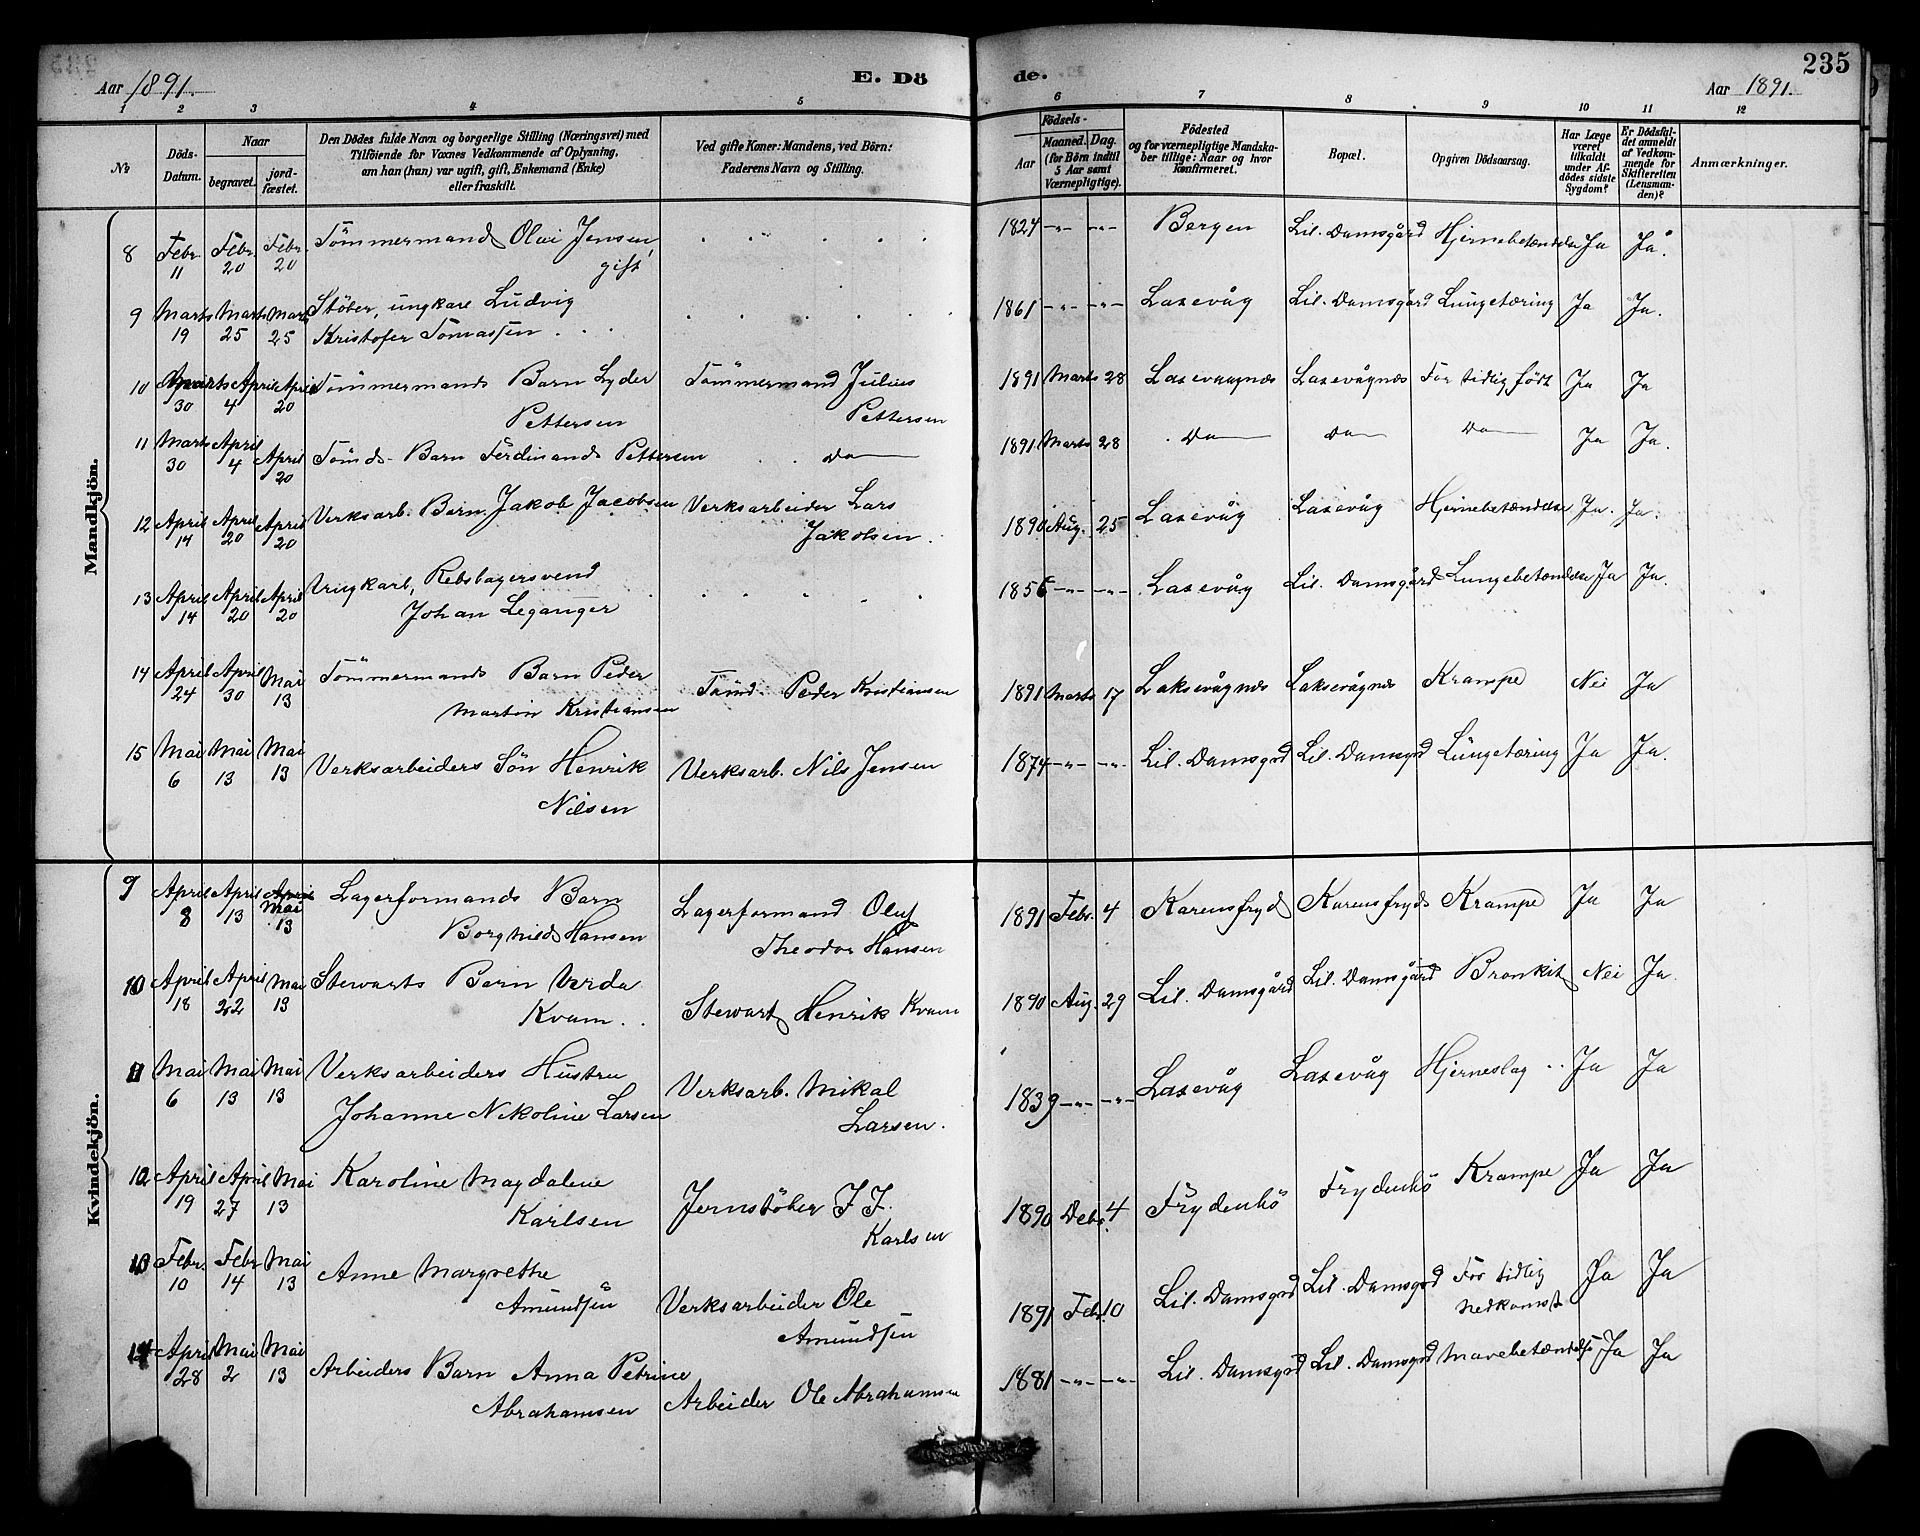 235
Aar 1891. E. Dö de. Aar 1891.
1 2 3 4 5 6 7 8 9 10 11 12
№
Döds-Datum.
Naar
begravet.
jord-fæstet.
Den Dödes fulde Navn og borgerlige Stilling (Næringsvei) med
Tilföiende for Voxnes Vedkommende af Oplysning,
om han (hun) var ugift, gift, Enkemand (Enke)
eller fraskilt.
Ved gifte Koner: Mandens, ved Börn:
Faderens Navn og Stilling.
Födsels-
Aar
Maaned. Dag.
(for Börn indtil
5 Aar samt
Værnepligtige).
Födested
og for værnepligtige Mandska-
ber tillige: Naar og hvor
konfirmeret.
Bopæl.
Opgiven Dödsaarsag.
Har Læge
været
tilkaldt
under Af-
dödes sidste
Sygdom?
Er Dödsfal-
det anmeldt
af Vedkom-
mende for
Skifteretten
(Lensman-
den)?
Anmærkninger.
Mandkjön.
8 Febr. 11 Febr. 20 Febr. 20 Tömmermand Olai Jensen 1824 -"- -"- Bergen Lil. Damsgård Hjernebetændelse Ja Ja.
gift
9 Marts 19 Marts 25 Marts 25 Stöber, ungkarl Ludvig 1861 -"- -"- Laxevåg Lil. Damsgård Lungetæring Ja Ja.
Kristofer Tomassen
10 Marts 30 April 4 April 20 Tömmermands Barn Lyder Tömmermand Julius 1891 Marts 28 Laxevaagnæs Laxevågnæs For tidlig födt Ja Ja
Pettersen Pettersen
11 Marts 30 April 4 April 20 Tömds Barn Ferdinand Pettersen Do 1891 Marts 28 Do Do Do Ja Ja.
12 April 14 April 20 April 20 Verksarb. Barn Jakob Jacobsen Verksarbeider Lars 1890 Aug. 25 Laxevåg Laxevåg Hjernebetændelse Ja. Ja.
Jakobsen.
13 April 14 April 20 April 20 Ungkarl, Rebslagersvend 1856 -"- -"- Laxevåg Lil. Damsgård Lungebetændelse Ja Ja.
Johan Leganger
14 April 24 April 30 Mai 13 Tömmermands Barn Peder Tömd. Peder Kristiansen 1891 Marts 17 Laksevågnæs Laksevågnæs Krampe Nei Ja
Martin Kristiansen
15 Mai 6 Mai 13 Mai 13 Verksarbeiders Sön Henrik Verksarb. Nils Jensen 1874 -"- -"- Lil. Damsgrd Lil. Damsgrd Lungetæring Ja Ja.
Nilsen
Kvindekjön.
9 April 8 April 13 April Mai 13 Lagerformands Barn Lagerformand Oluf 1891 Febr. 4 Karensfryd Karensfryd Krampe Ja Ja
Borghild Hansen Theodor Hansen
10 April 18 April 22 Mai 13 Stewarts Barn Verda Stewart Henrik Kvam 1890 Aug. 29 Lil. Damsgård Lil. Damsgård Bronkit Nei Ja.
Kvam
11 Mai 6 Mai 13 Mai 13 Verksarbeiders Hustru Verksarb. Mikal 1839 -"- -"- Laxevåg Laxevåg Hjerneslag Ja Ja
Johanne Nikoline Larsen Larsen.
12 April 19 April 27 Mai 13 Karoline Magdalene Jernstöber J. J. 1890 Debr. 4 Frydenbö Frydenbö Krampe Ja Ja
Karlsen Karlsen
13 Febr. 10 Febr 14 Mai 13 Anne Margrethe Verksarbeider Ole 1891 Febr. 10 Lil. Damsgrd Lil. Damsgrd For tidlig Ja Ja
Amundsen Amundsen nedkomst
14 April 28 Mai 2 Mai 13 Arbeiders Barn Anna Petrine Arbeider Ole Abrahamsen 1881 -"- -"- Lil. Damsgrd Lil. Damsgrd Mavebetændelse Ja Ja
Abrahamsen